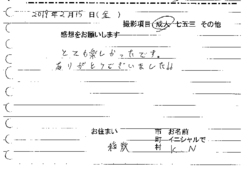 2019年2月15日(金)
撮影項目(成人 七五三 その他
感想をお願いします
とても楽しかったです。
ありがとうございました!!
お住まい 市 お名前
町 イニシャルで
村 K N